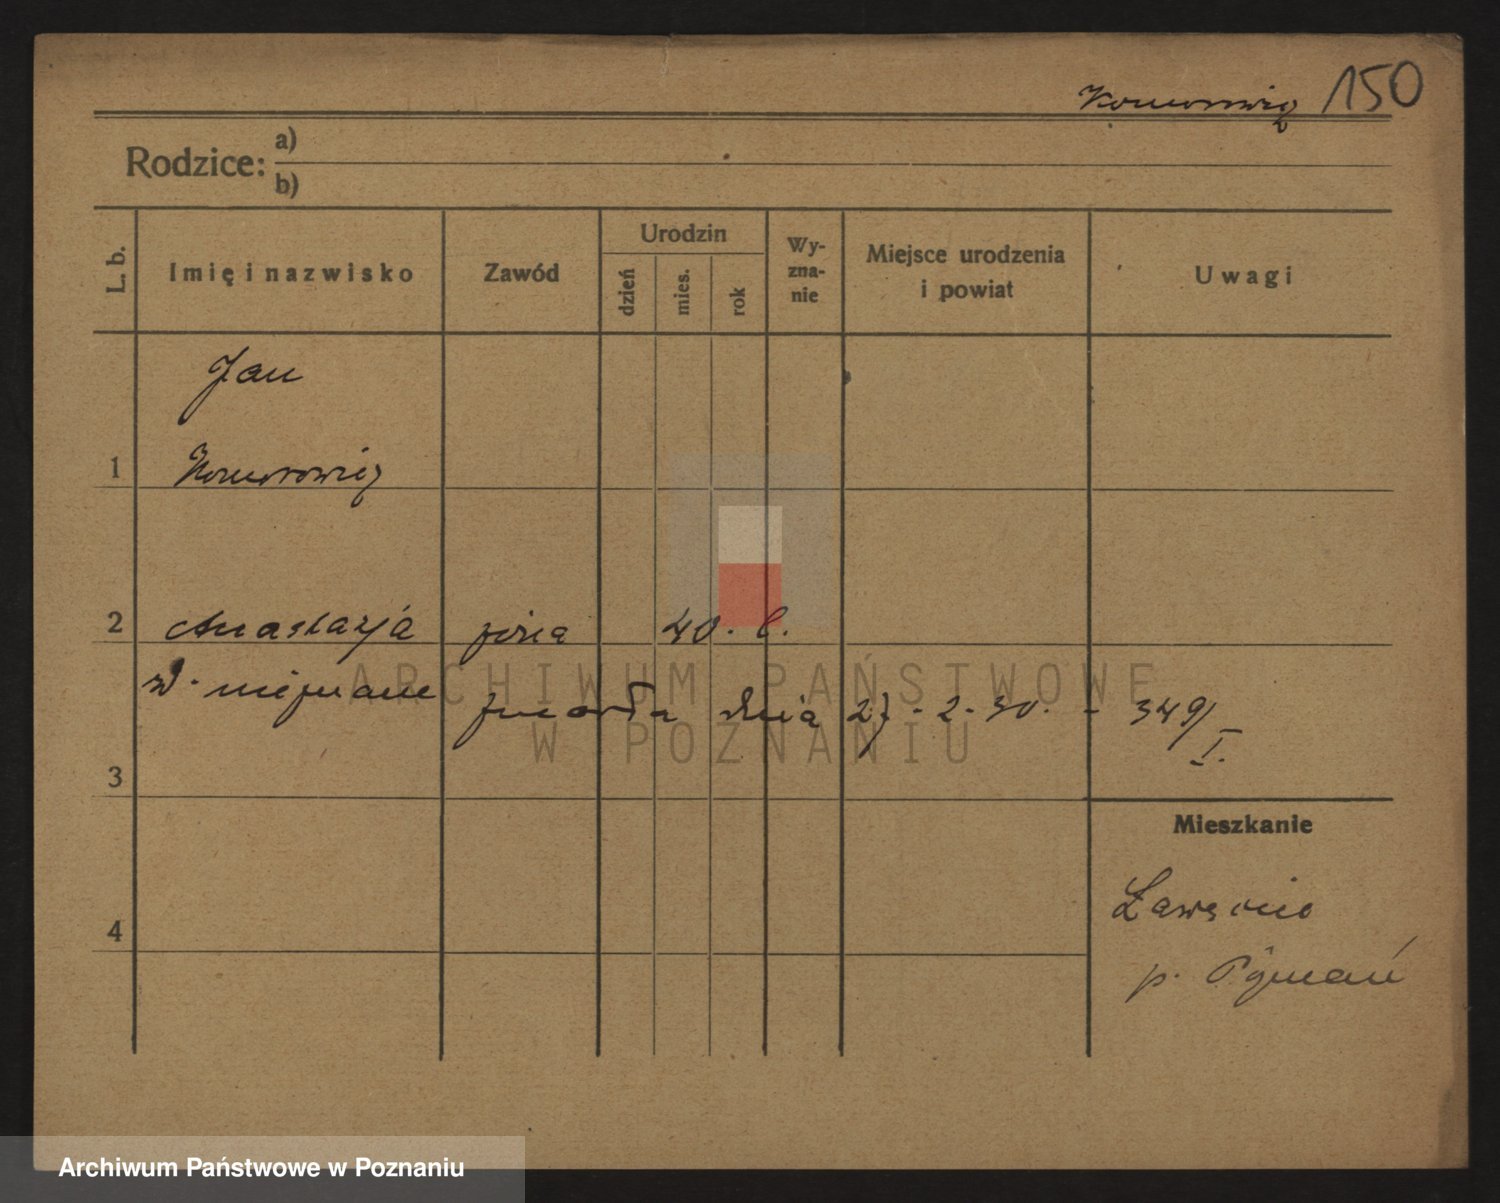 150
Rodzice:
a)
b)
L. b.
Imię i nazwisko
Zawód
Urodzin
dzień
mies.
rok
Wy-
zna-
nie
Miejsce urodzenia
i powiat
Uwagi
Jan
1
2 Anastazja żona 40. l.
zmarła dnia 27.2.30. - 349/
I.
3
Mieszkanie
4
p. Poznań
ARCHIWUM PAŃSTWOWE
W POZNANIU
Archiwum Państwowe w Poznaniu